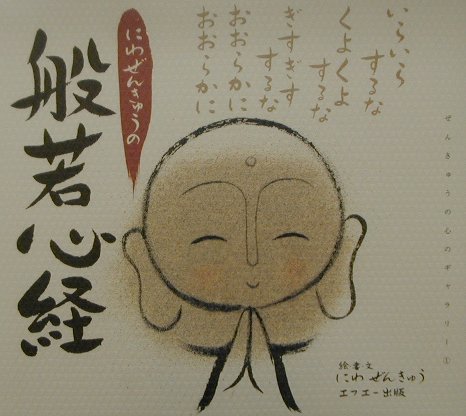 ぜんきゅうの心のギャラリー①
いらいら
するな
くよくよ
するな
ぎすぎす
するな
おおらかに
おおらかに
にわぜんきゅうの
般若心経
絵・書・文
にわぜんきゅう
エフエー出版